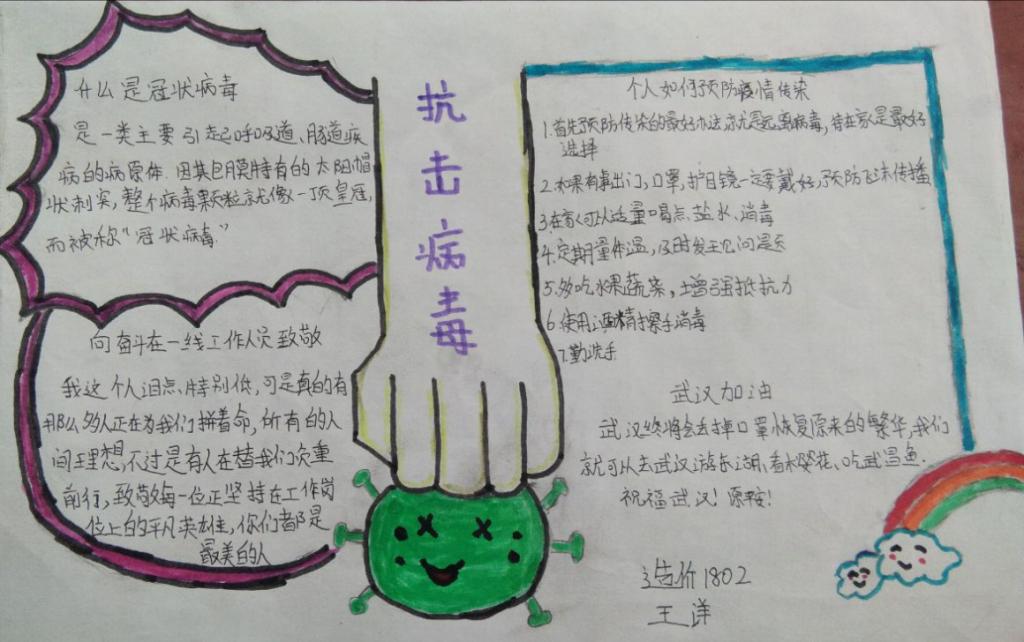 什么是冠状病毒
是一类主要引起呼吸道、肠道疾
病的病原体.因其包膜特有的太阳帽
状刺突,整个病毒颗粒就像一顶皇冠,
而被称“冠状病毒”
向奋斗在一线工作人员致敬
我这个人泪点特别低,可是真的有
那么多人正在为我们拼着命,所有的人
间理想,不过是有人在替我们负重
前行,致敬每一位正坚持在工作岗
位上的平凡英雄,你们都是
最美的人
抗
击
病
毒
个人如何预防疫情传染
1.首先预防传染的最好办法就是远离病毒,待在家是最好
选择
2.如果有事出门,口罩,护目镜一定要戴好,预防飞沫传播
3.在家可以适量喝点盐水、消毒
4.定期量体温,及时发现问题
5.多吃水果蔬菜,增强抵抗力
6.使用酒精擦手消毒
7.勤洗手
武汉加油
武汉终将会丢掉口罩恢复原来的繁华,我们
就可以去武汉游东湖、看樱花、吃武昌鱼.
祝福武汉!原安!
造价1802
王洋